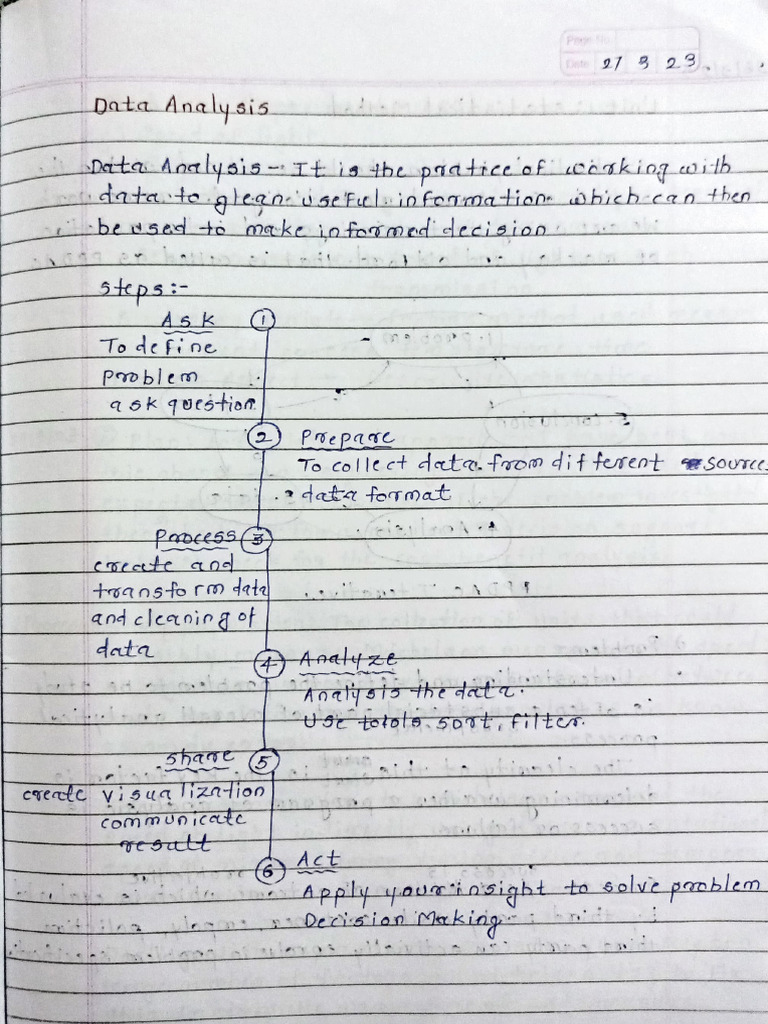 Page No.
Date 21 3 23.
Data Analysis
Data Analysis - It is the pratice of working with
data to glean useful information which can then
be used to make informed decision
steps:-
Ask 1
To define
problem
ask question
2 Prepare
To collect data from different source
data format
Process 3
create and
transform data
and cleaning of
data
4 Analyze
Analysis the data.
Use sort, filter.
share 5
create visualization
communicate
result
6 Act
Apply your insight to solve problem
Decision Making